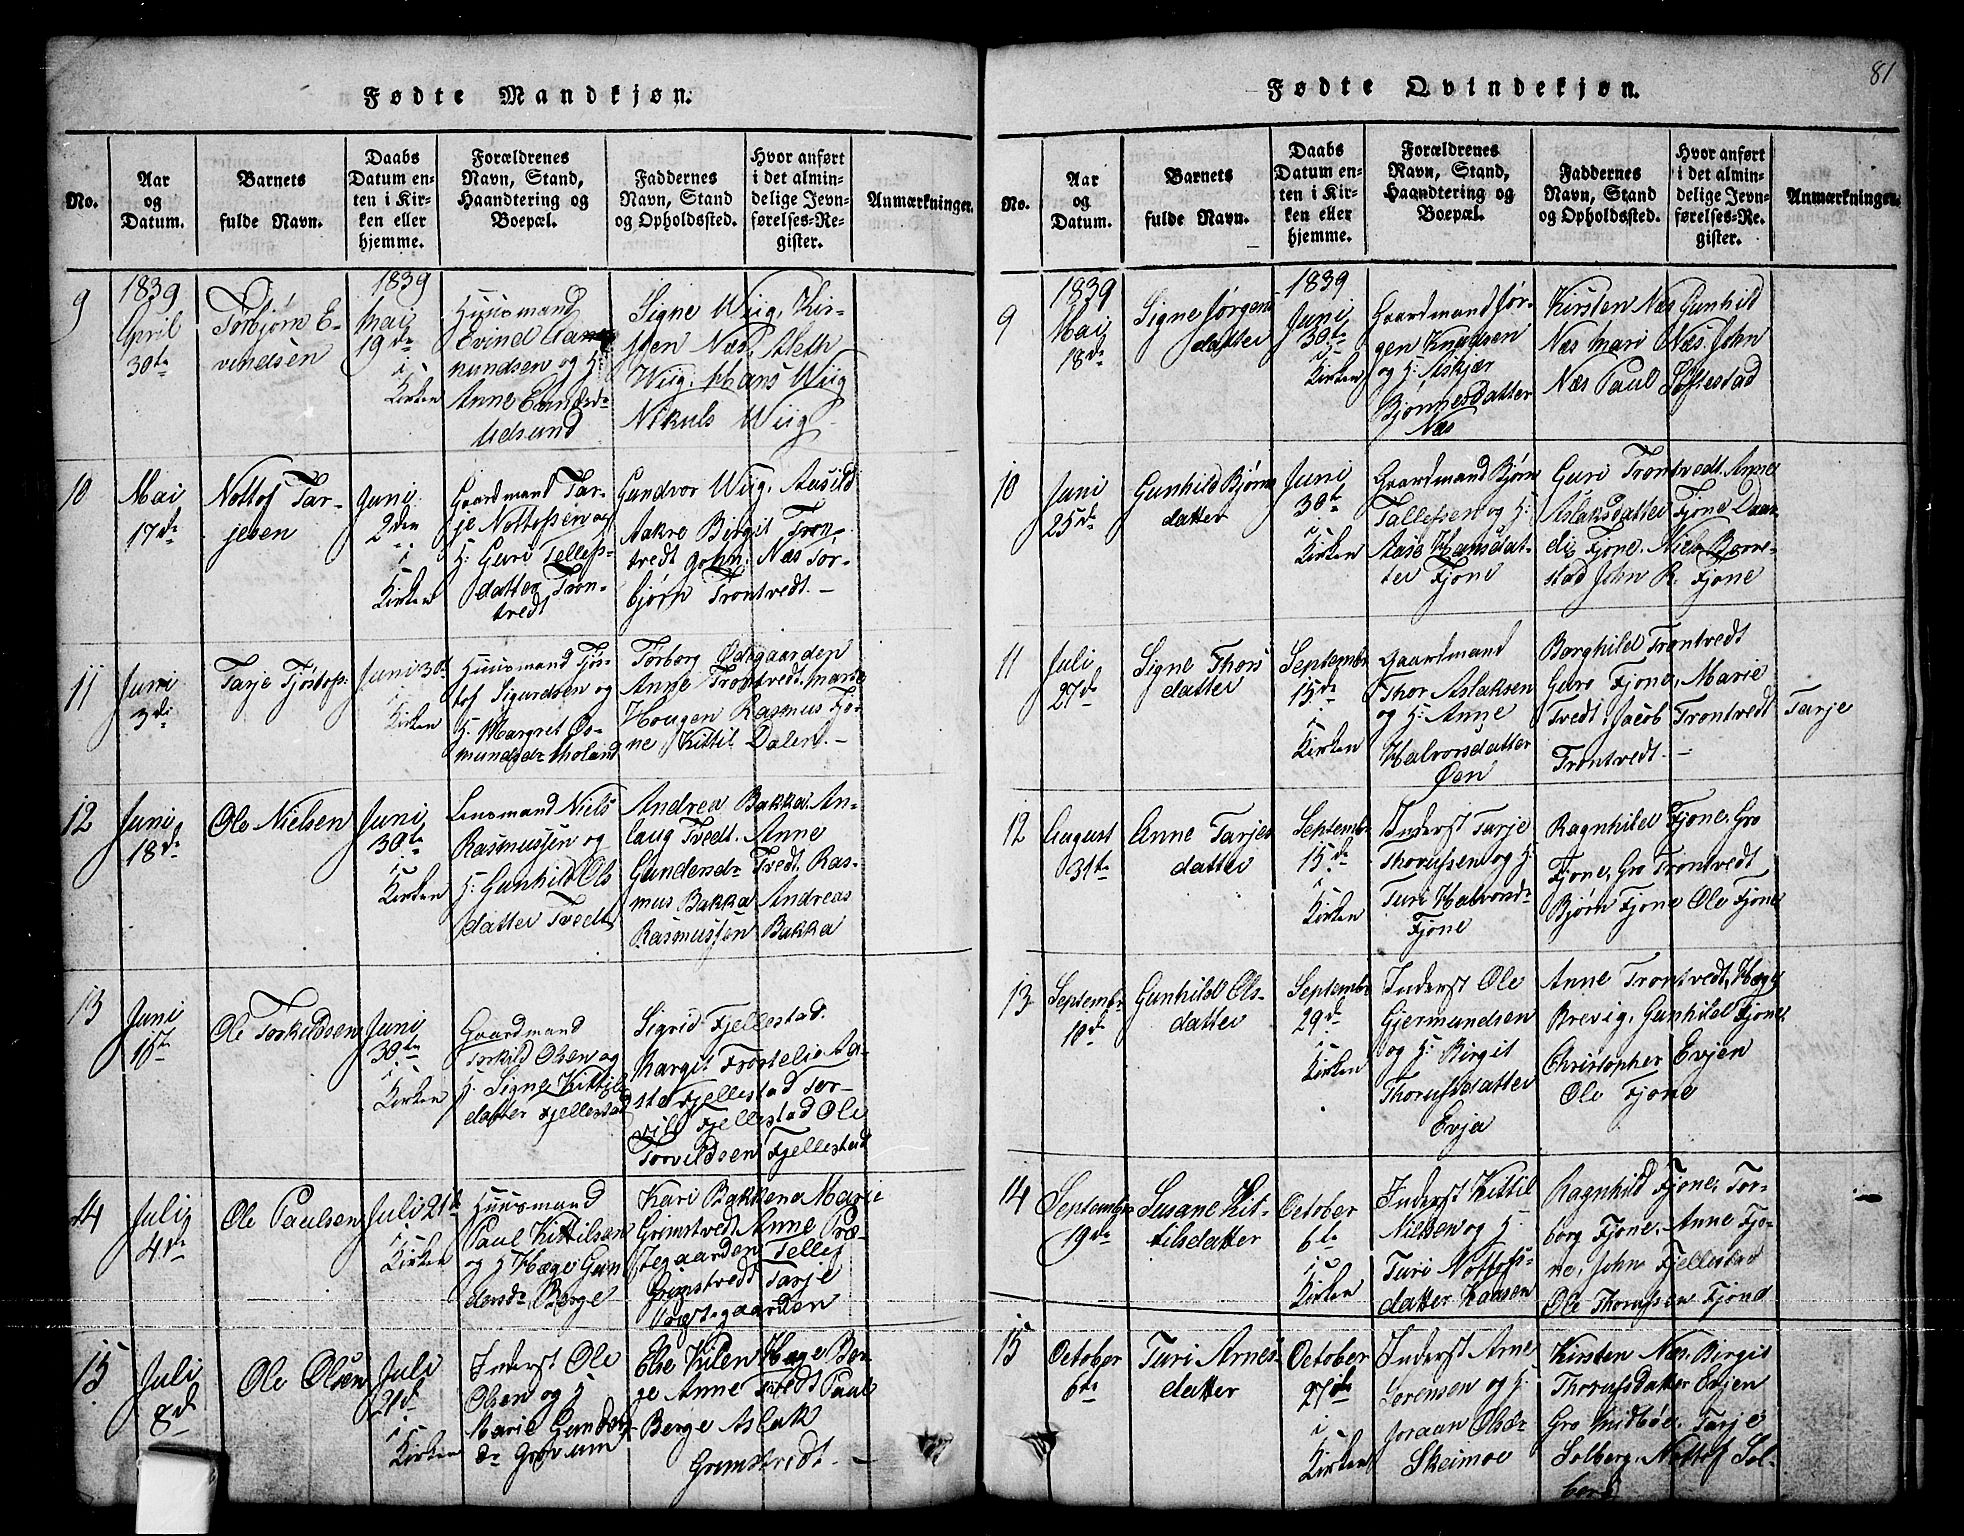 81
Fødte Mandkjøn.
No.
Aar
og
Datum.
Barnets
fulde Navn.
Daabs
Datum en-
ten i Kir-
ken eller
hjemme.
Forældrenes
Navn, Stand,
Haandtering og
Boepæl.
Faddernes
Navn, Stand
og Opholdssted.
Hvor anført
i det almin-
delige Jevn-
førelses-Re-
gister.
Anmærkninger.
9
1839
April
30te
Torbjørn E-
vindsen
1839
Mai
19de
i
Kirken
Huusmand
Evind Aa-
mundsen og H:
Anne
Udsund
Signe Wiig, Kir-
sten Næs, Aleth
Wiig, Hans Wiig
Nikuls Wiig
10
Mai
17de
Nottof Tar-
jesen
Juni
2den
i
Kirken
Gaardmand Tar-
je Nottofsen og
H: Guri Tellefs-
datter Tron-
tvedt
Gundvor Wiig, Ausild
Aakre Birgit Tron-
tvedt John Næs Tor-
bjørn Trontvedt. –
11
Juni
3de
Tarje Tjostofs:
Juni 30te
i
Kirken
Huusmand Tjos-
tof Sigurdsen og
H: Margret Os-
mundsdr Moland
Torborg Ødegaarden
Anne Trontvedt Marie
Hougen Rasmus Fjo-
ne Kittil Dalen. –
12
Juni
18de
Ole Nielsen
Juni
30te
i
Kirken
Lensmand Niels
Rasmussen og
H: Gunhild Ols
datter Tvedt
Andrea Bakka An-
laug Tvedt. Anne
Gundersdr Tvedt Ras-
mus Bakka Andreas
Rasmussen Bakka
13
Juni
Ole Torkildsen
Juni
30te
i
Kirken
Gaardmand
Torkild Olsen og
H: Signe Kittils
datter Fjellestad
Sigrid Fjellestad.
Margit Frostelie Aa-
ste Fjellestad Tor-
vild Fjellestad Ole
Torvildsen Fjellestad
14
Juli
4de
Ole Paulsen
Juli 21de
i
Kirken
Huusmand
Paul Kittilsen
og H Hæge Gun
dersdr Berge
Kari Bakkena Marie
Grimstvedt Anne Præ-
stegaarden Tellef
Grimstvedt Tarje
Præstegaarden
15
Juli
8de
Ole Olsen
Juli
21de
i
Kirken
Inderst Ole
Olsen og H
Marie Gunders
dr Grovum
Else Kilen Hæge Ber-
ge Anne Tvedt Paul
Berge Aslak
Grimstvedt. –
Fødte Qvindekjøn.
No.
Aar
og
Datum.
Barnets
fulde Navn.
Daabs
Datum en-
ten i Kir-
ken eller
hjemme.
Forældrenes
Navn, Stand,
Haandtering og
Boepæl.
Faddernes
Navn, Stand
og Opholdssted.
Hvor anført
i det almin-
delige Jevn-
førelses-Re-
gister.
Anmærkninger.
9
1839
Mai
18de
Signe Jørgens
datter
1839
Juni
30te
i
Kirken
Gaardmand Jør-
gen Knudsen
og H: Askjær
Bjønnesdatter
Næs
Kirsten Næs Gunhild
Næs Mari Næs. John
Næs Paul Søftestad
10
Juni
25de
Gunhild Bjørns
datter
Juni
30te
i
Kirken
Gaardmand Bjørn
Tallefsen og H:
Aase Hansdat-
ter Fjone
Guri Trontvedt. Anne
Aslaksdatter Fjone Daar-
dis Fjone. Niels Bore-
stad John R. Fjone
11
Juli
27de
Signe Thors
datter
Septembr
15de
i
Kirken
Gaardmand
Thor Aslaksen
og H: Anne
Halvorsdatter
Øen
Borghild Trontvedt
Guro Fjone, Marie
Tvedt. Jacob Trontvedt Tarje
Trontvedt. –
12
August
31te
Anne Tarjes
datter
Septembr
15de
i
Kirken
Inderst Tarje
Thorufsen og H:
Turi Halvorsdr
Fjone
Ragnhild Fjone, Gro
Fjone, Gro Trontvedt
Bjørn Fjone Ole Fjone
13
Septembr
10de
Gunhild Ols-
datter
Septembr
29de
i
Kirken
Inderst Ole
Gjermundsen
og H: Birgit
Thorufsdatter
Evja
Anne Trontvedt, Hæge
Brevig, Gunhild Fjone,
Christopher Evjen
Ole Fjone
14
Septembr
19de
Susane Kit-
tilsdatter
October
6te
i
Kirken
Inderst Kittil
Nielsen og H:
Turi Nottofs-
datter Hansen
Ragnhild Fjone, Tor-
borg Fjone, Anne Fjo-
ne, John Fjellestad
Ole Thorufsen Fjone
15
October
6te
Turi Arnes-
datter
October
27de
i
Kirken
Inderst Arne
Sørensen og H:
Joraan Olsdr
Skeimoe
Kirsten Næs. Birgit
Thorufsdatter Evjen
Gro Midbøe, Tarje
Solberg, Nottof Sol-
berg